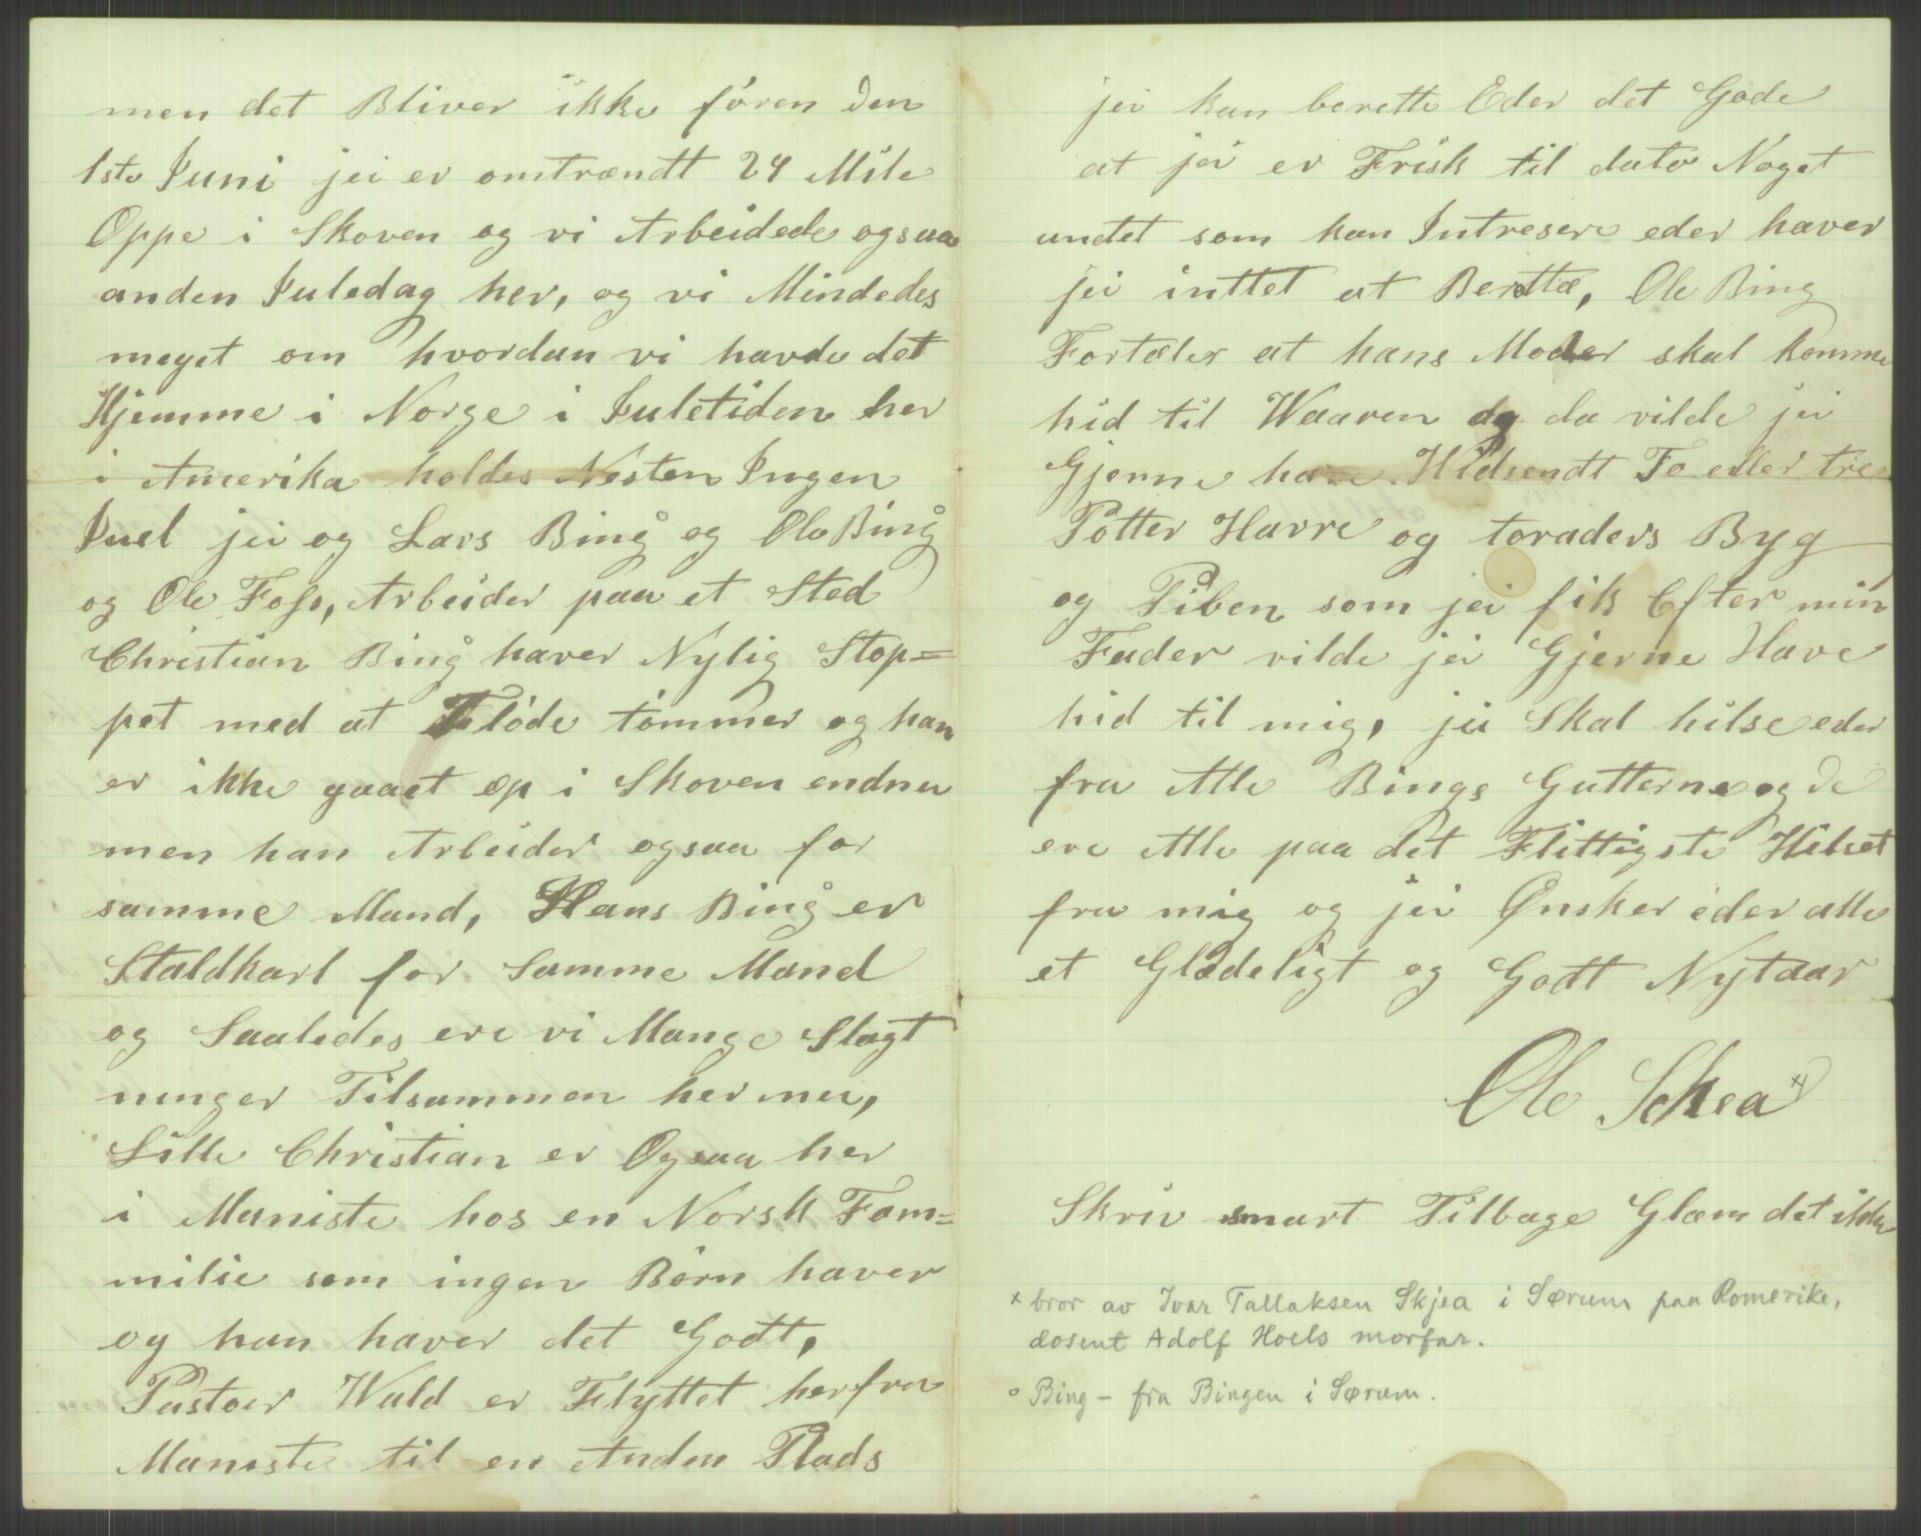 men det Bliver ikke føren Den
1ste Juni jei er omtrændt 24 Mile
Oppe i Skoven og vi Arbeidede ogsaa
anden Juledag her, og vi Mindedes
meget om hvordan vi havde det
Hjemme i Norge i Juletiden her
i Amerika holdes Nesten Ingen
Juel jei og Lars Bing° og Ole Bing°
og Ole Foss, Arbeider paa et Sted
Christian Bing° haver Nylig Stop=
pet med at Fløde tømmer og han
er ikke gaaet op i Skoven endnu
men han Arbeider ogsaa for
samme Mand, Hans Bing° er
Staldkarl for Samme Mand
og Saaledes ere vi Mange Slægt
ninger Tilsammen her nu,
Lille Christian er Ogsaa her
i Maniste hos en Norsk Fam=
milie som ingen Børn haver
og han haver det Godt,
Pastoer Wald er Flyttet herfra
Maniste til en Anden Plads
jei kan berette Eder det Gode
at jei er Frisk til dato Noget
andet som kan Intresere eder haver
jei inttet at Berettæ, Ole Bing
Fortæler at hans Moder skal komme
hid til Waaren og da vilde jei
Gjerne have Hidsendt To eller tre
Potter Havre og toraders Byg
og Piben som jei fik Efter min
Fader vilde jei Gjerne Have
hid til mig, jei Skal hilse eder
fra Alle Bings Gutterne og De
ere Alle paa det Flittigste Hilset
fra mig og jei Ønsker eder alle
et Gladeligt og Godt Nytaar
Ole Schea x
Skriv snart Tilbage Glæm det ikke
x bror av Ivar Tallaksen Skjea i Sørum paa Romerike,
dosent Adolf Hoels morfar.
° Bing - fra Bingen i Sørum.